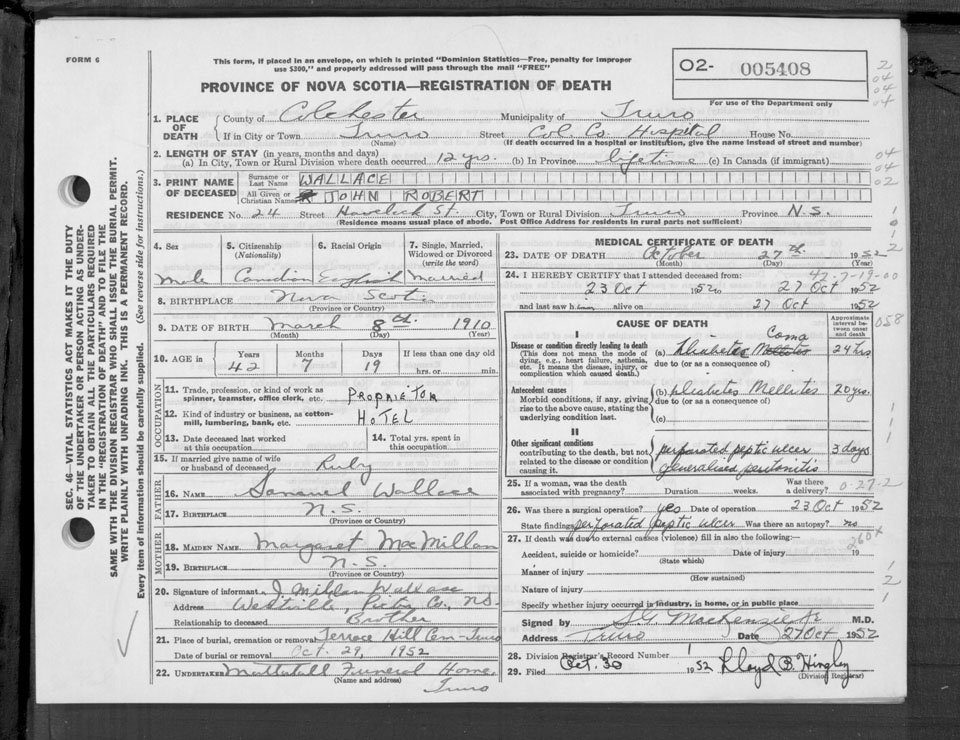 FORM 6
This form, if placed in an envelope, on which is printed "Dominion Statistics—Free, penalty for improper
use $300," and properly addressed will pass through the mail "FREE"
PROVINCE OF NOVA SCOTIA—REGISTRATION OF DEATH
O2- 005408
For use of the Department only
2
04
04
04
SEC. 46—VITAL STATISTICS ACT MAKES IT THE DUTY
OF THE UNDERTAKER OR PERSON ACTING AS UNDER-
TAKER TO OBTAIN ALL THE PARTICULARS REQUIRED
IN THE "REGISTRATION OF DEATH" AND TO FILE THE
SAME WITH THE DIVISION REGISTRAR WHO SHALL ISSUE THE BURIAL PERMIT.
WRITE PLAINLY WITH UNFADING INK. THIS IS A PERMANENT RECORD.
Every item of information should be carefully supplied. (See reverse side for instructions.)
1. PLACE OF DEATH
County of Colchester Municipality of Truro
If in City or Town Truro Street Col. Co. Hospital House No.
(Name) (If death occurred in a hospital or institution, give the name instead of street and number)
2. LENGTH OF STAY (in years, months and days)
(a) In City, Town or Rural Division where death occurred 12 yrs. (b) In Province lifetime (c) In Canada (if immigrant)
04
04
02
3. PRINT NAME OF DECEASED
Surname or Last Name WALLACE
All Given or Christian Names JOHN ROBERT
RESIDENCE No. 24 Street Havelock St. City, Town or Rural Division Truro Province N.S.
(Residence means usual place of abode. Post Office Address for residents in rural parts not sufficient)
4. Sex Male
5. Citizenship (Nationality) Canadian
6. Racial Origin English
7. Single, Married, Widowed or Divorced (write the word) Married
8. BIRTHPLACE Nova Scotia
(Province or Country)
9. DATE OF BIRTH March 8th. 1910
(Month) (Day) (Year)
10. AGE in Years 42 Months 7 Days 19 If less than one day hrs. or min.
OCCUPATION
11. Trade, profession, or kind of work as spinner, teamster, office clerk, etc. PROPRIETOR
12. Kind of industry or business, as cotton-mill, lumbering, bank, etc. HOTEL
13. Date deceased last worked at this occupation
14. Total yrs. spent in this occupation
15. If married give name of wife or husband of deceased Ruby
FATHER
16. NAME Samuel Wallace
17. BIRTHPLACE N.S.
(Province or Country)
MOTHER
18. MAIDEN NAME Margaret MacMillan
19. BIRTHPLACE N.S.
(Province or Country)
20. Signature of informant J. Millan Wallace
Address Westville, Pictou Co., NS-
Relationship to deceased Brother
21. Place of burial, cremation or removal Terrace Hill Cem-Truro
Date of burial or removal Oct. 29, 1952
22. UNDERTAKER Mattatall Funeral Home,
(Name and address) Truro
MEDICAL CERTIFICATE OF DEATH
23. DATE OF DEATH October 27th. 1952
(Month) (Day) (Year)
24. I HEREBY CERTIFY that I attended deceased from: 42-7-19-00
23 Oct 1952 to 27 Oct 1952
and last saw him alive on 27 Oct 1952
CAUSE OF DEATH
Approximate interval between onset and death
I
Disease or condition directly leading to death
(This does not mean the mode of dying, e.g., heart failure, asthenia, etc. It means the disease, injury, or complication which caused death.)
(a) Diabetes Mellitis Coma 24 hrs
due to (or as a consequence of)
058
Antecedent causes
Morbid conditions, if any, giving rise to the above cause, stating the underlying condition last.
(b) Diabetes Mellitis 20 yrs.
due to (or as a consequence of)
(c)
II
Other significant conditions
contributing to the death, but not related to the disease or condition causing it.
perforated peptic ulcer
generalised peritonitis 3 days
25. If a woman, was the death associated with pregnancy? Duration weeks. Was there a delivery? 0-27-2
26. Was there a surgical operation? yes Date of operation 23 Oct 1952
State findings perforated peptic ulcer Was there an autopsy? no
27. If death was due to external causes (violence) fill in also the following:—
260x
Accident, suicide or homicide? Date of injury 19
(State which)
Manner of injury
(How sustained)
Nature of injury
Specify whether injury occurred in industry, in home, or in public place
Signed by MacKenzie M.D.
Address Truro Date 27 Oct 1952
28. Division Registrar's Record Number
29. Filed Oct. 30 1952 Lloyd B. Hingley
(Division Registrar)